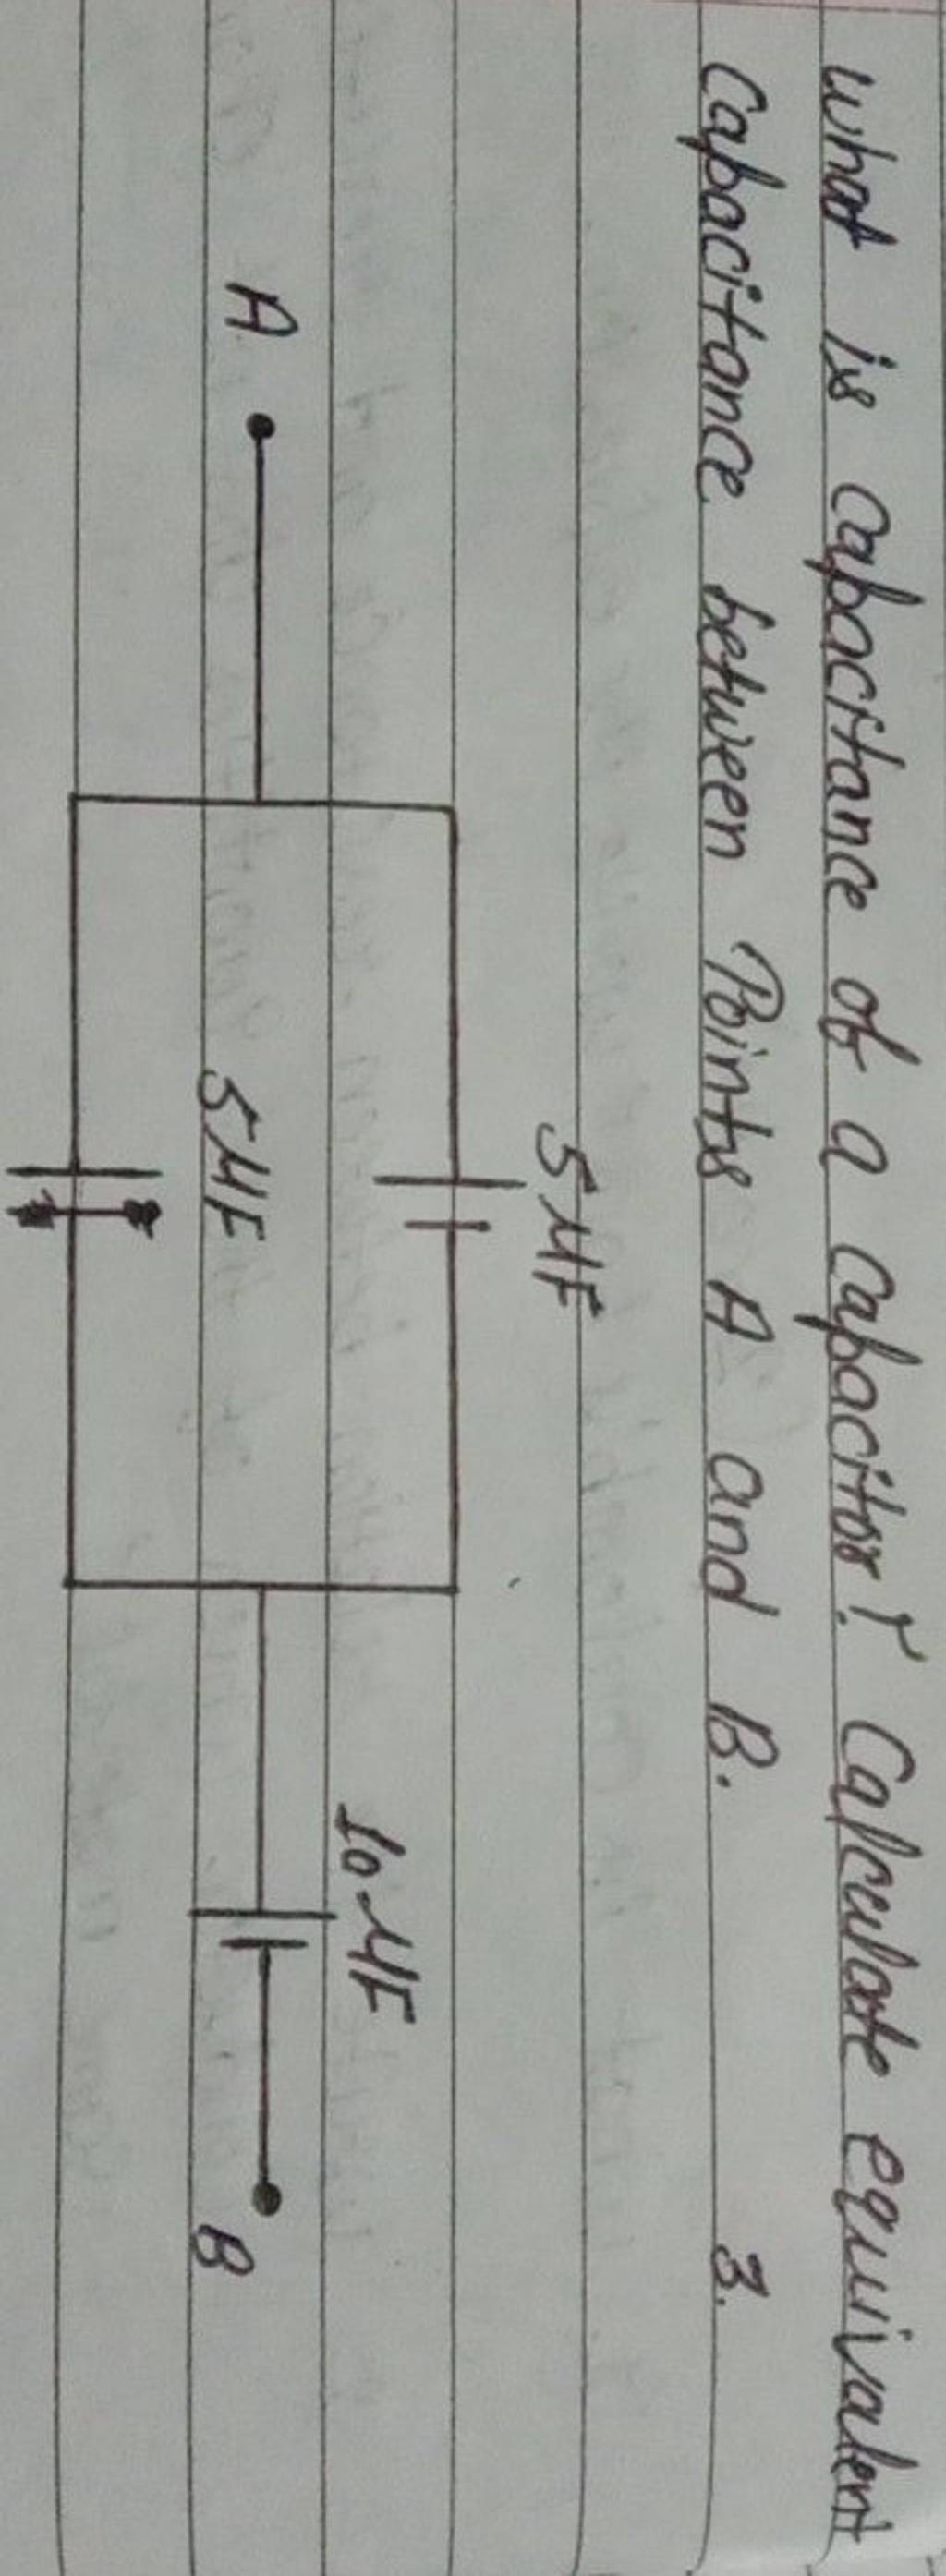 what is capacitance of a capacitor? Calculate equivalent
Capacitance between Points A and B. 3.
5 μF
10 μF
A
5 μF
B